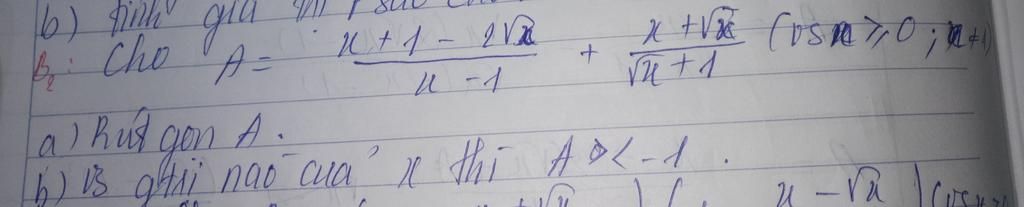 b) tính giá
B2: Cho A = \frac{x + 1 - 2\sqrt{x}}{x - 1} + \frac{x + \sqrt{x}}{\sqrt{x} + 1} (vs x ≥ 0 ; x ≠ 1)
a) Rút gọn A.
b) vs gtrị nào của x thì A < -1.
x - \sqrt{x}